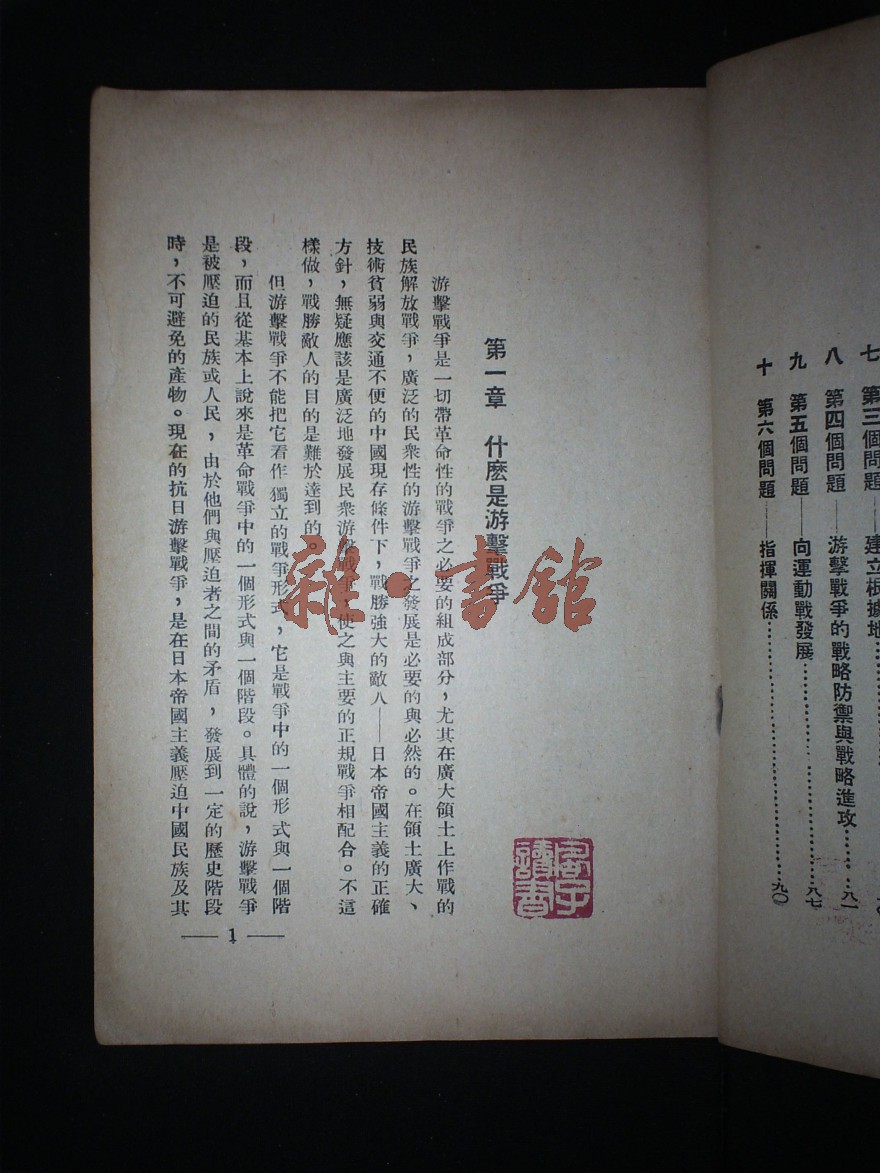 七　第三個問題——建立根據地
八　第四個問題——游擊戰爭的戰略防禦與戰略進攻………八一
九　第五個問題——向運動戰發展…………………八七
十　第六個問題——指揮關係…………………九〇
第一章　什麽是游擊戰爭
游擊戰爭是一切帶革命性的戰爭之必要的組成部分，尤其在廣大領土上作戰的
民族解放戰爭，廣泛的民衆性的游擊戰爭之發展是必要的與必然的。在領土廣大、
技術貧弱與交通不便的中國現存條件下，戰勝強大的敵人——日本帝國主義的正確
方針，無疑應該是廣泛地發展民衆游擊戰爭，使之與主要的正規戰爭相配合。不這
樣做，戰勝敵人的目的是難於達到的。
但游擊戰爭不能把它看作獨立的戰爭形式，它是戰爭中的一個形式與一個階
段，而且從基本上說來是革命戰爭中的一個形式與一個階段。具體的說，游擊戰爭
是被壓迫的民族或人民，由於他們與壓迫者之間的矛盾，發展到一定的歷史階段
時，不可避免的產物。現在的抗日游擊戰爭，是在日本帝國主義壓迫中國民族及其
— 1 —
雜·書館